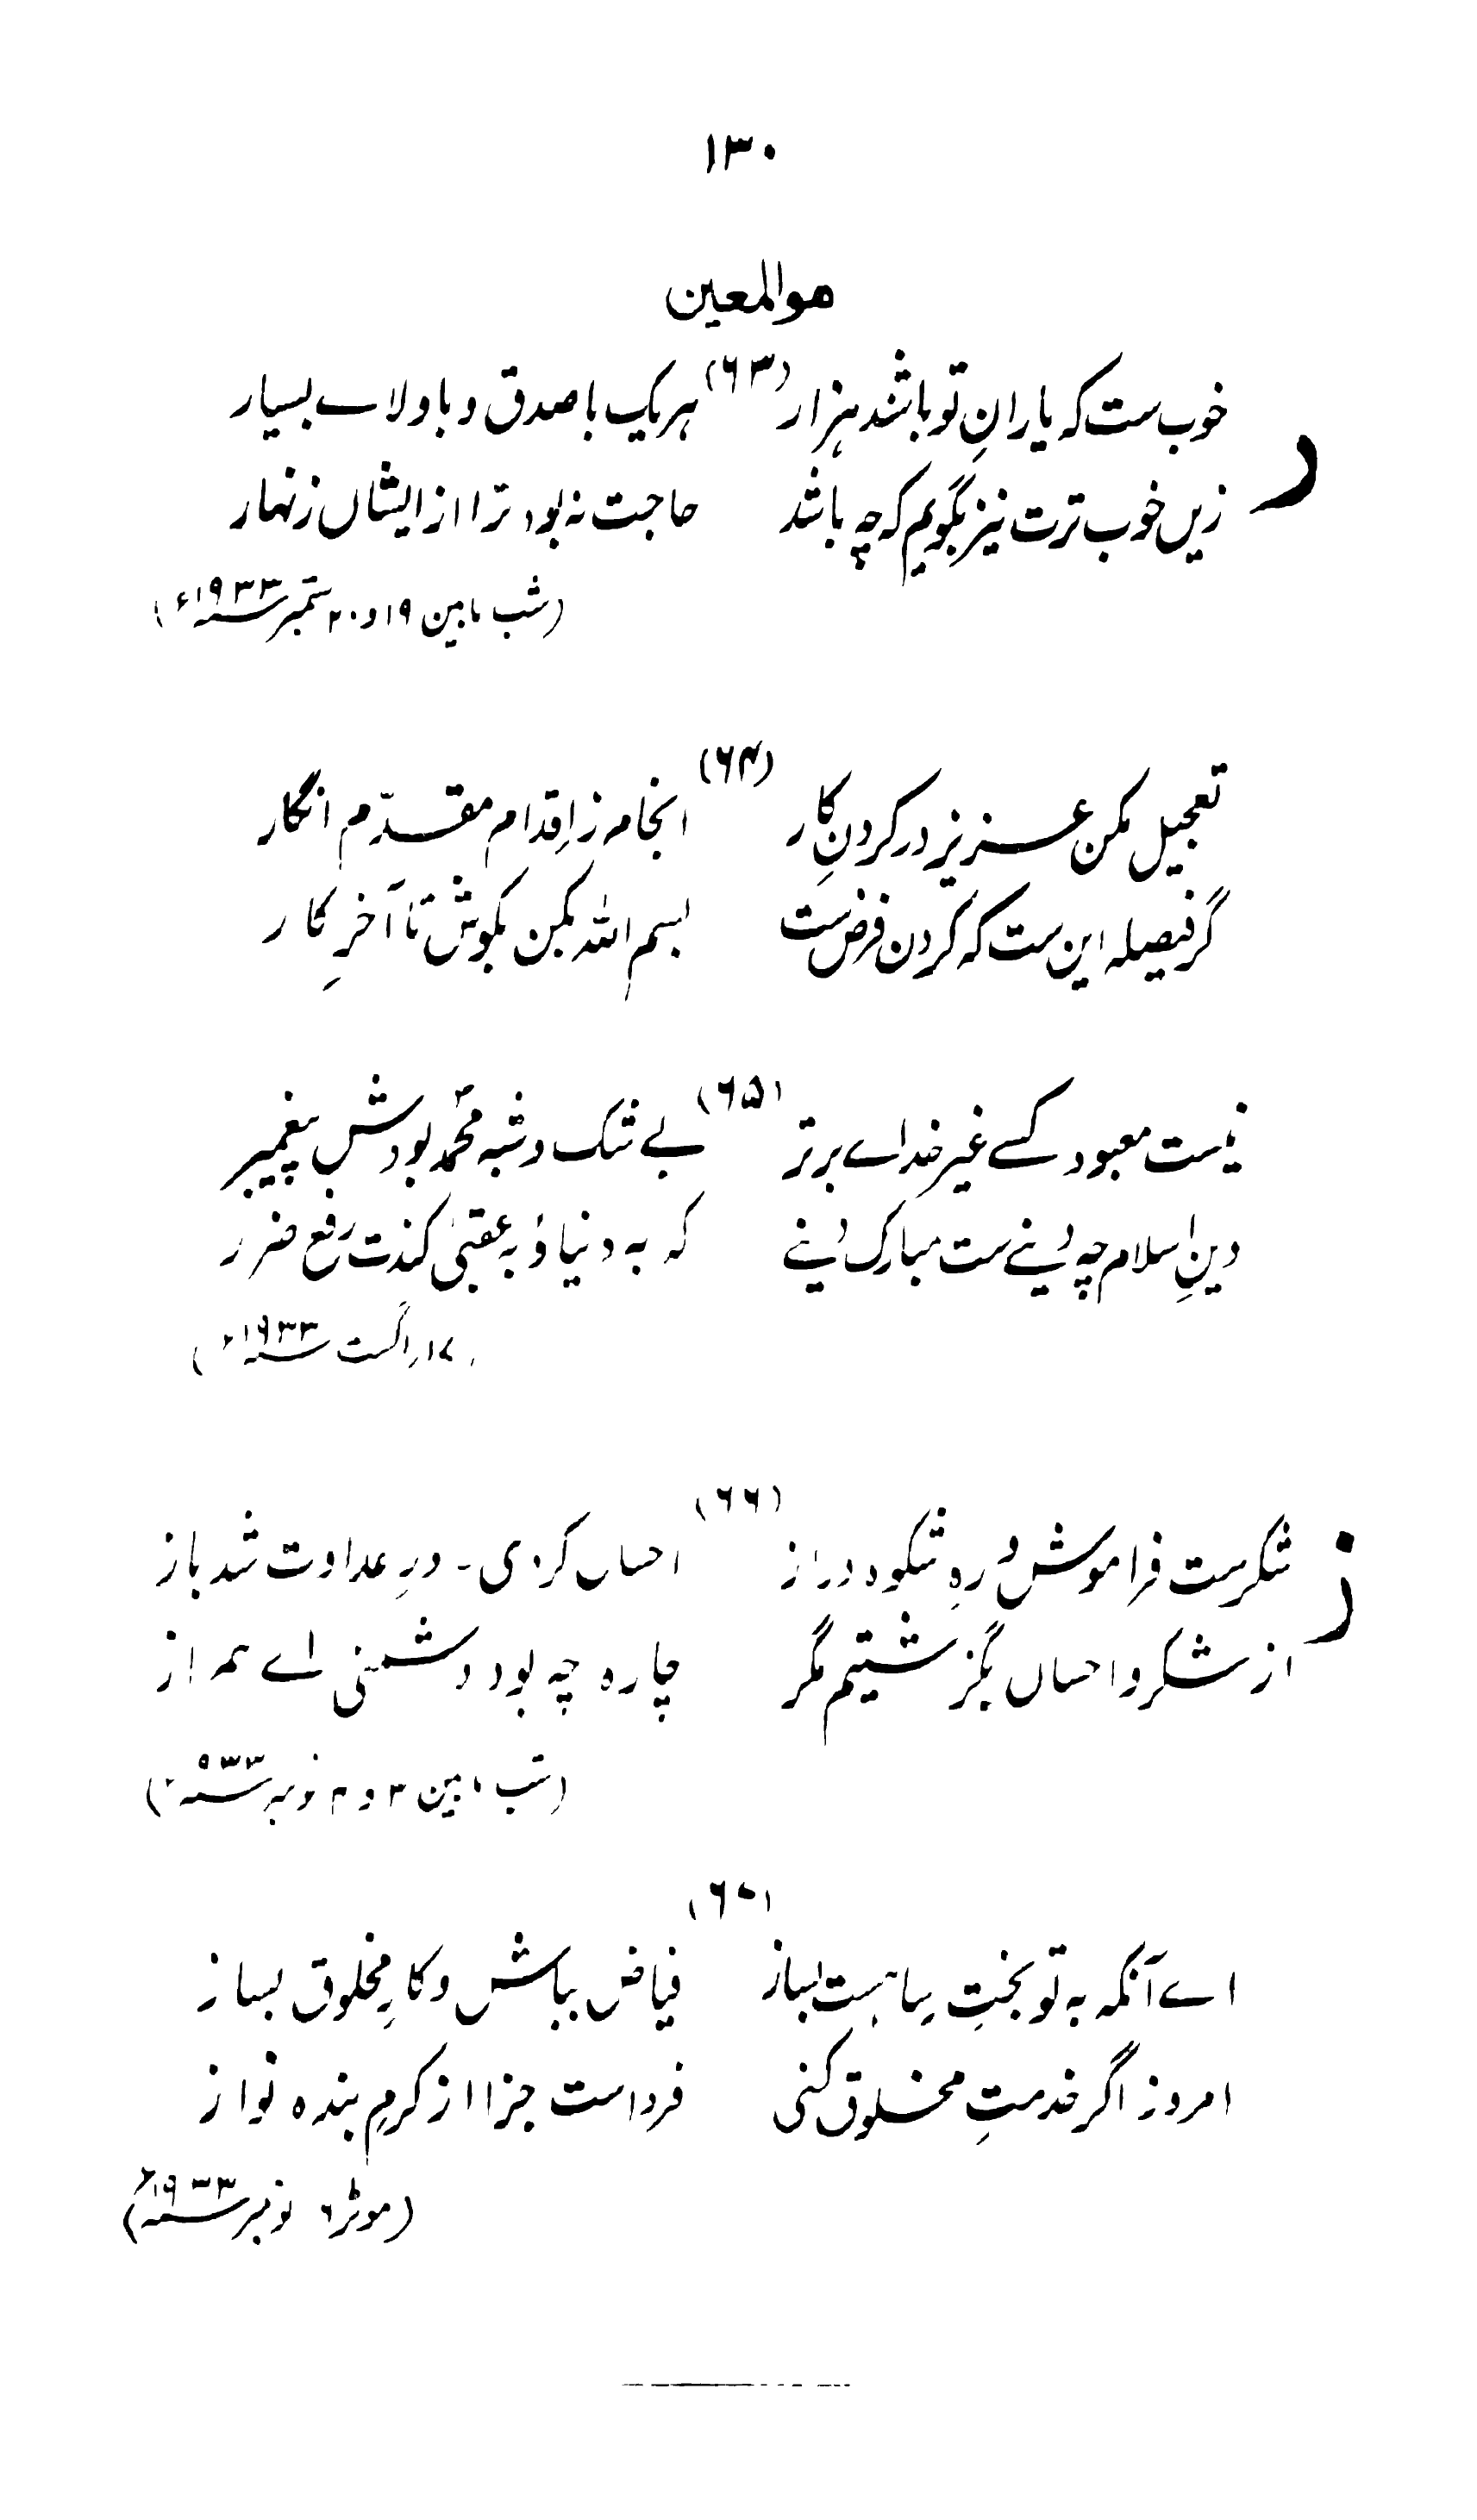 ۱۳۰
هوالمعین
(۶۳)
ر
خوب ست کہ یارانِ تو باشد ہزار ہر یک با صدق و با ولاے بسیار
زین خوب ترت نیز بگویم کہ چہ باشد حاجت نہ بود ترا از ایشاں زنہار
(شب مابین ۱۹ و ۲۰ ستمبر ۱۹۳۳ء)
(۶۴)
تعجیل مکن عزیز در کردنِ کار انجام ز اقدام مقدّم انگار
گر فیصلہ این ست کہ کردن فرض ست بسم اللہ بکن بکوش تا آخرِ کار
(۶۵)
نیست معبود کسے غیر خداے برتر بے شک و شبہ محمّد بودش پیغمبر
دینِ اسلام چہ دینے ست مبارک دینے کہ بہ دنیا و بہ عقبیٰ کندت رفع ضرر
اگست ۱۹۳۳ء)
(۶۶)
ز
شکرست فراموش و رہِ شکوہ دراز احساں کردی۔ درِ عداوت شد باز
از شکر و احساں بگزشتیم مگر چارہ چہ بود دشمنی اے ہمراز
(شب مابین ۳ و ۴ نومبر ۱۹۳۳ء)
(۶۷)
اے آنکہ بہ تو بختِ رسا ہست نیاز فیاض بباش و کارِ مخلوق بساز
امروز اگر خدمتِ مخلوق کنی فرداست جزا از کرمِ بندہ نواز
نومبر ۱۹۳۳ء)